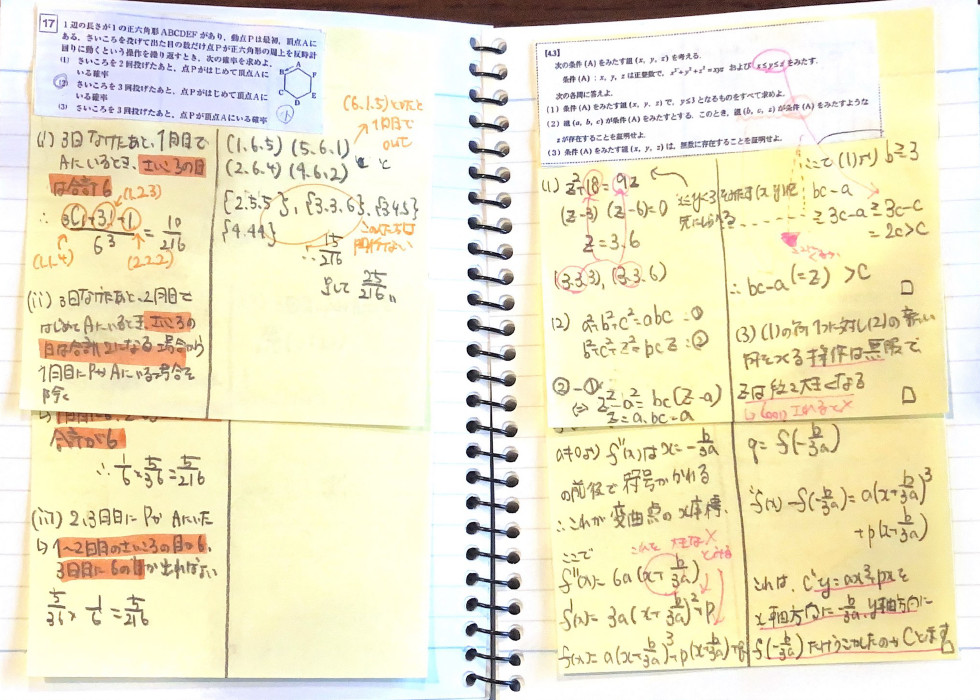 17
1辺の長さが1の正六角形 ABCDEF があり,動点Pは最初,頂点Aに
ある.さいころを投げて出た目の数だけ点Pが正六角形の周上を反時計
回りに動くという操作を繰り返すとき,次の確率を求めよ.
(1) さいころを2回投げたあと,点Pがはじめて頂点Aに
いる確率
(2) さいころを3回投げたあと,点Pがはじめて頂点Aに
いる確率
(3) さいころを3回投げたあと,点Pが頂点Aにいる確率
A
B
F
C
E
D
(i) 3回なげたあと,1周目で
Aにいるとき,さいころの目
は合計6
(1.2.3)
∴ 3(1+3!)+1 / 6³ = 10/216
(1.1.4)
(2.2.2)
(ii) 3回なげたあと,2周目で
はじめてAにいるとき,さいころの
目は合計12になる場合から
1周目にPがAにいる場合を
除く
(6.1.5)だと
1回目で
outと
(1.6.5) (5.6.1)
(2.6.4) (4.6.2)
{2.5.5}, {3.3.6}, {3.4.5}
{4.4.4}
∴ 15/216
よって 25/216
合計が6
∴ 1/6 × 5/36 = 5/216
(iii) 2,3回目にPがAにいた
↳ 1〜2回目のさいころの目が6,
3回目に6の目が出ればよい
5/36 × 1/6 = 5/216
[4.3]
次の条件 (A) をみたす組 (x, y, z) を考える.
条件 (A):x, y, z は正整数で, x²+y²+z²=xyz および x≤y≤z をみたす.
次の各問に答えよ.
(1) 条件 (A) をみたす組 (x, y, z) で, y≤3 となるものをすべて求めよ.
(2) 組 (a, b, c) が条件 (A) をみたすとする. このとき, 組 (b, c, z) が条件 (A) をみたすような
z が存在することを証明せよ.
(3) 条件 (A) をみたす組 (x, y, z) は, 無数に存在することを証明せよ.
(1) z²+18=9z
(z-3)(z-6)=0
z=3.6
(3.3.3), (3.3.6)
(2) a²+b²+c²=abc …①
b²+c²+z²=bcz …②
②-①
⇔ z²-a²=bc(z-a)
z=a, bc-a
ここで (1)より b≥3
bc-a
≥3c-a≥3c-c
=2c>c
∴ bc-a(=z) >c □
(3) (1)の
操作は無限で
zは
大きくなる □
a≠0より f''(x)はx=-b/3a
の前後で符号がかわる
∴これが変曲点のx座標
ここで
f''(x)=6a(x+b/3a)
f'(x)=3a(x+b/3a)²+p
f(x)=a(x+b/3a)³+p(x+b/3a)+q
q=f(-b/3a)
∴f(x)-f(-b/3a)=a(x+b/3a)³
+p(x+b/3a)
これは, C' y=ax³+pxを
x軸方向に-b/3a, y軸方向に
f(-b/3a)だけうごかしたのがCと示す